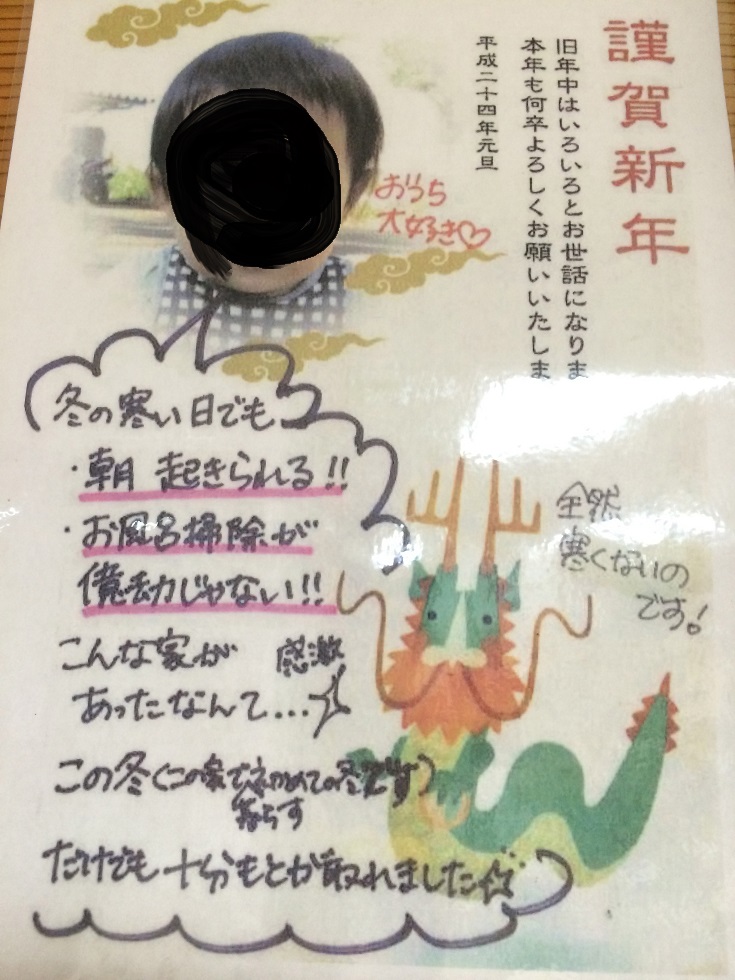 謹賀新年
旧年中はいろいろとお世話になりま
本年も何卒よろしくお願いいたしま
平成二十四年元旦
おうち
大好き♡
冬の寒い日でも
・朝 起きられる!!
・お風呂掃除が
億劫じゃない!!
こんな家が 感激
あったなんて...
全然
寒くないの
です!
この冬(この家で初めての冬です)
暮らす
だけでも十分もとが取れました☆